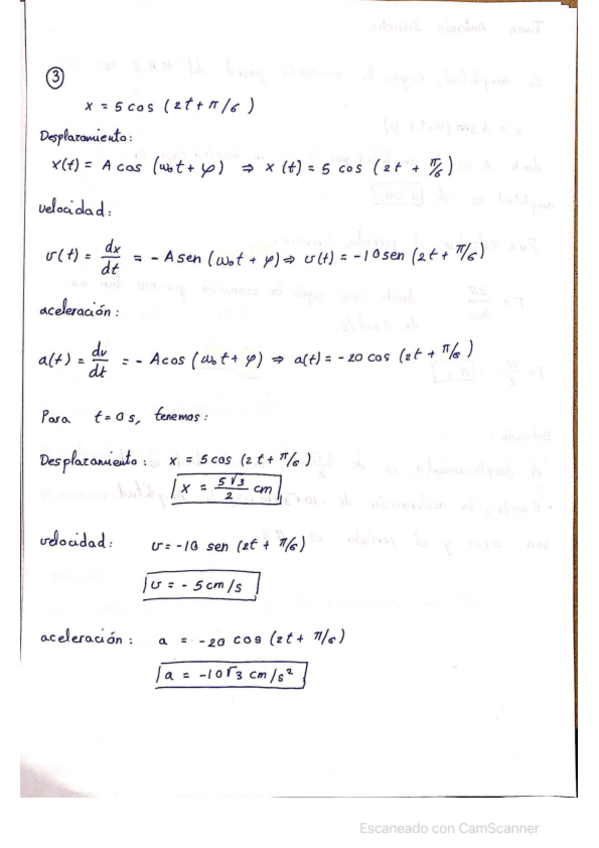 ③
x = 5 cos (2t + π/6)
Desplazamiento:
x(t) = A cos (ω₀t + φ) ⇒ x(t) = 5 cos (2t + π/6)
velocidad:
v(t) = dx/dt = - A sen (ω₀t + φ) ⇒ v(t) = -10 sen (2t + π/6)
aceleración:
a(t) = dv/dt = - A cos (ω₀t + φ) ⇒ a(t) = -20 cos (2t + π/6)
Para t = 0 s, tenemos:
Desplazamiento: x = 5 cos (2t + π/6)
x = 5√3/2 cm
velocidad: v = -10 sen (2t + π/6)
v = - 5 cm/s
aceleración: a = -20 cos (2t + π/6)
a = -10√3 cm/s²
Escaneado con CamScanner